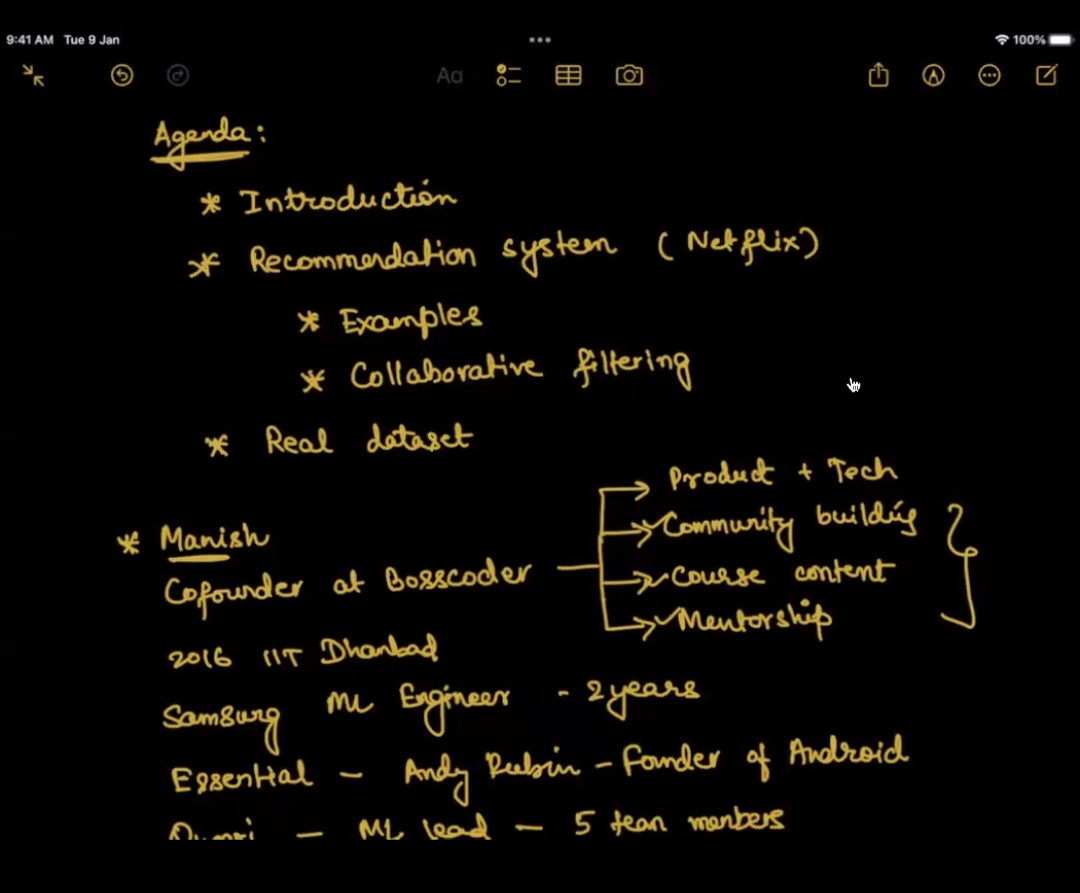 9:41 AM Tue 9 Jan
100%
Aa
Agenda:
* Introduction
* Recommendation system (Netflix)
* Examples
* Collaborative filtering
* Real dataset
Product + Tech
* Manish
Community building
Cofounder at Bosscoder
Course content
Mentorship
2016 IIT Dhanbad
Samsung ML Engineer - 2 years
Essential - Andy Rubin - Founder of Android
- ML lead - 5 team members